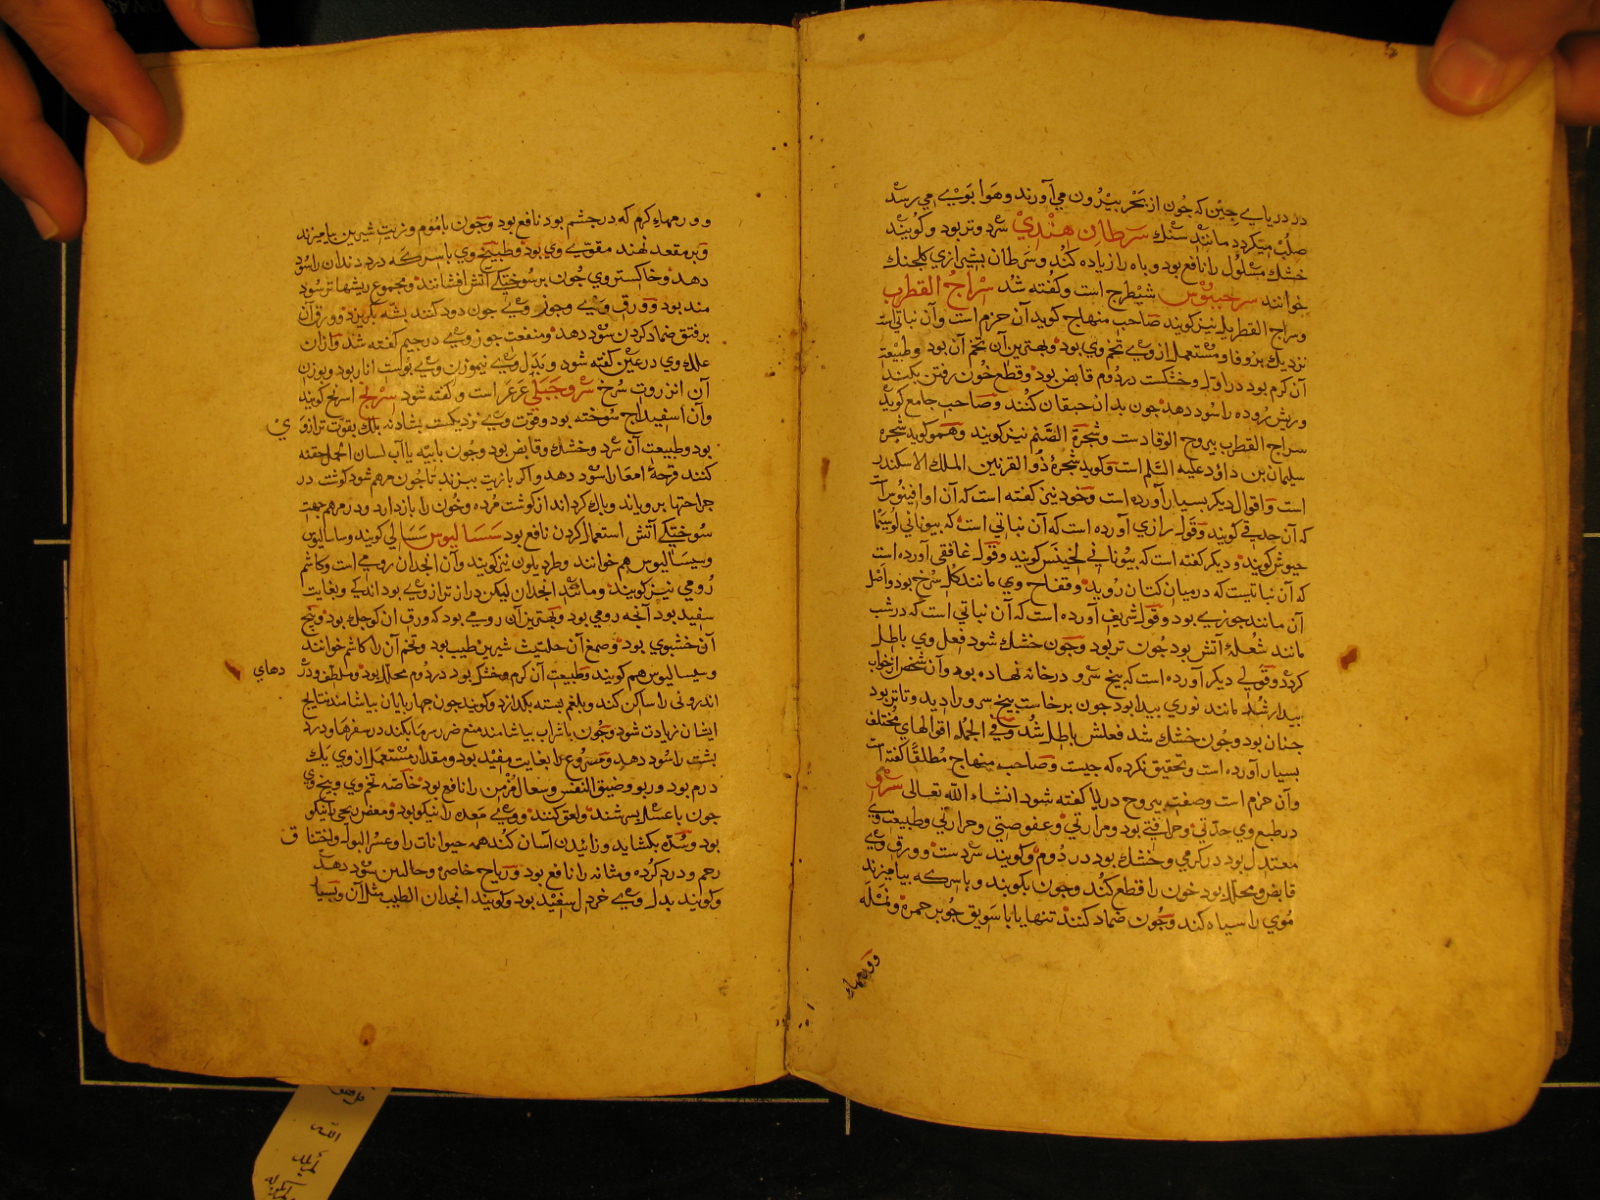 در دریای چین که چون از بحر بیرون می آورند و هوا بوی می رسد
صلب میکردد مانند سنک سرطان هندی سرد و تر بود و کویند
خشک مسلول را نافع بود و باه را زیاده کند و سرطان بشیرازی کلجنک
خوانند سرخیبوس شیطرج است و کفته شد سراج القطرب
وسراج القطربل نیز کویند صاحب منهاج کوید آن حزم است و آن نباتی است
نزدیک بزوفا و مستعمل از وی تخم وی بود و بهترین آن تخم آن بود و طبیعت
آن کرم بود در اول و خشکست در دوم قابض بود و قطع خون رفتن بکند
وریش روده را سود دهد جون بدان حقنه کنند و صاحب جامع کوید
سراج القطرب یبروح الوقاد است و شجرة الصنم نیز کویند و همو کوید شجرة
سلیمان بن داود علیه السلم است و کوید شجرة ذو القرنین الملک الاسکندر
است و اقوال دیکر بسیار آورده است و خود نیز کفته است که آن
که آن حدقی کویند و قول رازی آورده است که آن نباتی است که بیونانی لوسیما
خیوش کویند و دیکر کفته است که بیونانی لخینس کویند و قول غافقی آورده است
که آن نباتیست که درمیان کتان روید و فقاح وی مانند کل سرخ بود و اصل
آن مانند جوزی بود و قول شریف آورده است که آن نباتی است که در شب
مانند شعلۀ آتش بود جون تر بود وجون خشک شود فعل وی باطل
کردد و قولی دیکر آورده است که بیخ سرو درخانه نهاده بود و آن شخص از خواب
بیدار شد مانند نوری بیدا بود جون برخاست بیخ سرو را دید و تا تر بود
جنان بود وجون خشک شد فعلش باطل شد و فی الجمله اقوالهای مختلف
بسیار آورده است و تحقیق نکرده که جیست و صاحب منهاج مطلقا کفته است
و آن حزم است و صفت یبروح در یا کفته شود انشاء الله تعالی سرو
در طبع وی حدتی و حرافتی بود و مرارتی و عفوصتی و حرارتی و طبیعت وی
معتدل بود در کرمی و خشک بود در دوم و کویند سردست و ورق وی
قابض و محلل بود خون را قطع کند وجون بکوبند و باسرکه بیامیزند
موی را سیاه کند وجون ضماد کنند تنها یا با سویق جو بر حمره و نمله
و ورمهاء
و ورمهاء کرم که درجشم بود نافع بود وجون باموم و زیت شیرین بیامیزند
وبر مقعد نهند مقوی وی بود و طبیخ وی باسرکه درد دندان را سود
دهد و خاکستر وی جون برسوختکی آتش افشانند و مجموع ریشها تر سود
مند بود و ورق وی وجوز وی جون دود کنند بشه بکریزد و ورق آن
برفتق ضماد کردن سود دهد و منفعت جوز وی در جیم کفته شد و ازان
علک وی درعین کفته شود و بدل وی نیموزن وی بوست انار بود و بوزن
آن انزروت سرخ سرو جبلی عرعر است و کفته شود سرنج اسرنج کویند
و آن اسفیداج سوخته بود و قوت وی نزدیکست بشادنه بلک بقوت ترازوی
بود و طبیعت آن سرد وخشک و قابض بود وجون بابیه یا آب لسان الحمل حقنه
کنند قرحۀ امعا را سود دهد و اکر بازیت ببزند تا جون مرهم شود کوشت در
جراحتها برویاند و باک کرداند از کوشت مرده و خون را بازدارد و در مرهم جهت
سوختکی آتش استعمال کردن نافع بود سسالیوس سسالی کویند و ساسالیوس
وسیسالیوس هم خوانند و طردیلون نیز کویند و آن انجدان رومی است و کاشم
رومی نیز کویند و مانند انجدان لیکن درازتر از وی بود اندکی و بغایت
سفید بود آنجه رومی بود و بهترین آن رومی بود که ورق ان کوجک بود و بیخ
آن خشبوی بود و صمغ آن حلتیت شیرین طیب بود و تخم آن را کاشم خوانند
وسیسالیوس هم کویند و طبیعت آن کرم و خشک بود در دوم محلل بود و ملطف و دردهای
اندرونی را ساکن کند و بلغم بسته بکدازد و کویند جون جهاربایان بیاشامند نتایج
ایشان زیادت شود وجون باشراب بیاشامند منع ضرر سرما بکند در سفرها و درد
بشت را سود دهد و مصروع را بغایت مفید بود و مقدار مستعمل از وی یک
درم بود و ربو و ضیق النفس و سعال مزمن را نافع بود خاصه تخم وی و بیخ وی
جون با عسل بسرشند و لعق کنند و وی معده را نیکو بود و مغص ریحی را نیکو
بود و سده بکشاید و زائیدن آسان کند همه حیوانات را و عسر البول و اختناق
رحم و درد کرده و مثانه را نافع بود و ریاح خاصره و حالبین سود دهد
و کویند بدل وی خردل سفید بود و کویند انجدان الطیب مثل آن و بسیار